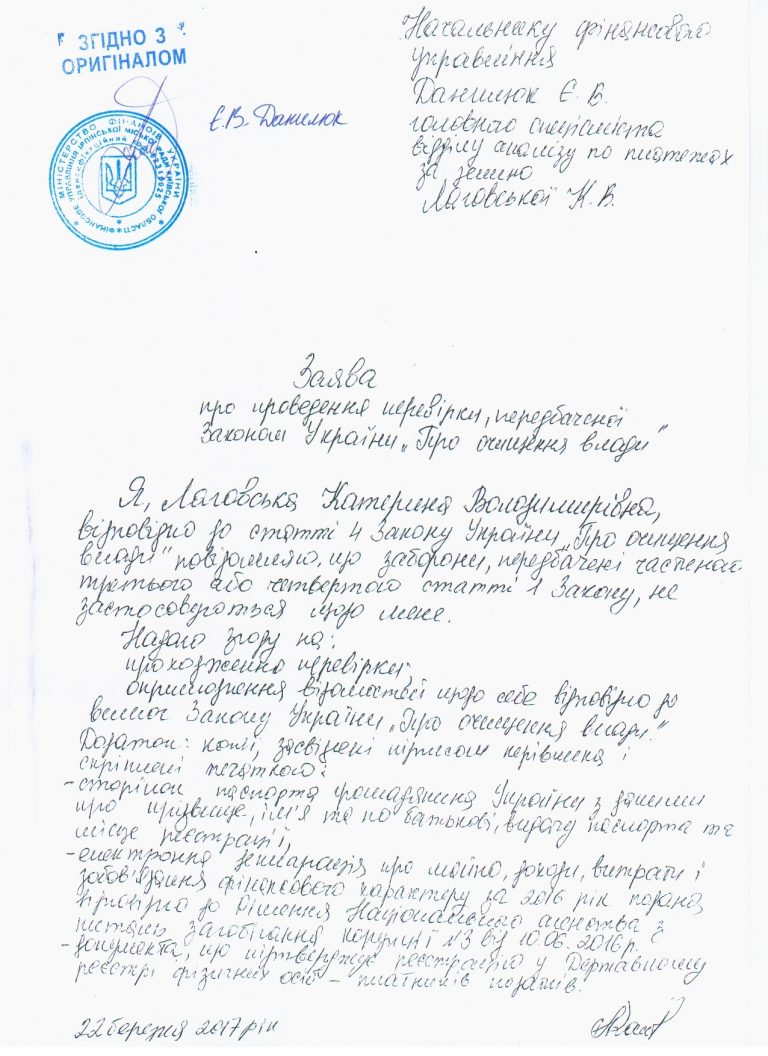 ЗГІДНО З
ОРИГІНАЛОМ
Є.В. Данилюк
МІНІСТЕРСТВО ФІНАНСІВ УКРАЇНИ
ФІНАНСОВЕ УПРАВЛІННЯ ІРПІНСЬКОЇ МІСЬКОЇ РАДИ КИЇВСЬКОЇ ОБЛАСТІ
Начальнику фінансового
управління
Данилюк Є.В.
головного спеціаліста
відділу аналізу по платежах
за землю
Лаговської К.В.
Заява
про проведення перевірки, передбаченої
Законом України „Про очищення влади"
Я, Лаговська Катерина Володимирівна,
відповідно до статті 4 Закону України „Про очищення
влади" повідомляю, що заборони, передбачені частиною
третьою або четвертою статті 1 Закону, не
застосовуються щодо мене.
Надаю згоду на:
проходження перевірки;
оприлюднення відомостей щодо себе відповідно до
вимог Закону України „Про очищення влади."
Додаток: копії, засвідчені підписом керівника і
скріплені печаткою:
- сторінок паспорта громадянина України з даними
про прізвище, ім'я та по батькові, видачу паспорта та
місце реєстрації;
- електронна декларація про майно, доходи, витрати і
зобов'язання фінансового характеру за 2016 рік подана
відповідно до Рішення Національного агентства з
питань запобігання корупції №3 від 10.06.2016р.
- документа, що підтверджує реєстрацію у Державному
реєстрі фізичних осіб – платників податків.
22 березня 2017 рік